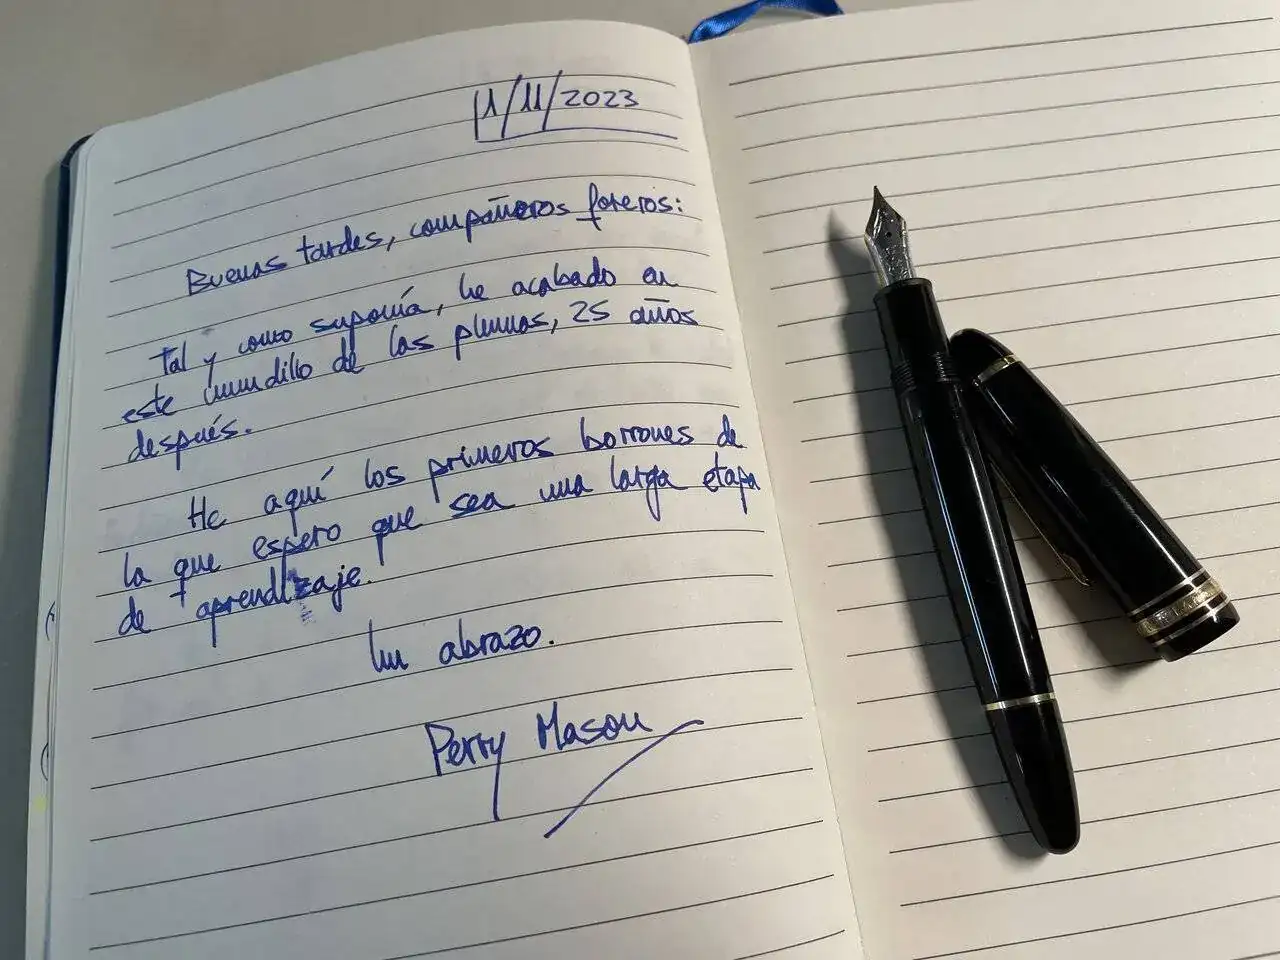 11/11/2023
Buenas tardes, compañeros foreros:
Tal y como suponía, he acabado en
este mundillo de las plumas, 25 años
después.
He aquí los primeros borrones de
la que espero que sea una larga etapa
de aprendizaje.
Un abrazo.
Perry Mason